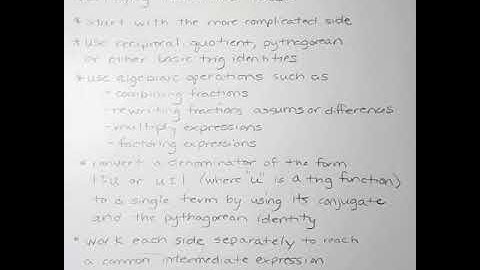 * start with the more complicated side
* use reciprocal, quotient, pythagorean
or other basic trig identities
* use algebraic operations such as
- combining fractions
- rewriting fractions as sums or differences
- multiply expressions
- factoring expressions
* convert a denominator of the form
1±u or u±1 (where "u" is a trig function)
to a single term by using its conjugate
and the pythagorean identity
* work each side separately to reach
a common intermediate expression